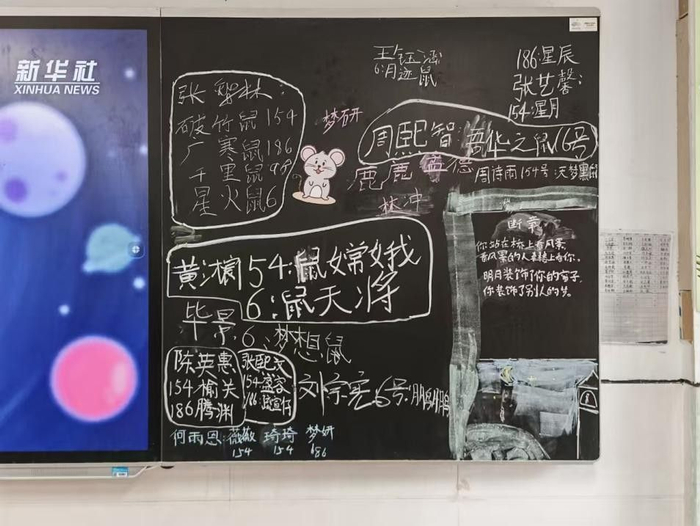 新华社
XINHUA NEWS
张智林
破竹鼠 154
广寒鼠 186
千里鼠 98
星火鼠 6
梦研
王钰涵
6:月迹鼠
186:星辰
张艺馨:
154:星月
周熙智 吾华之鼠 6号
鹿鹿盛德
林冲
周诗雨 154号:沃梦
断章
你站在桥上看风景
看风景的人在楼上看你。
明月装饰了你的窗子
你装饰了别人的梦。
黄沁桐 54:鼠嫦娥
6:鼠天将
毕景 6:梦想鼠
陈英惠
154榆关
186腾渊
张熙
154
186
刘宗宪 6号:鹏鹏
何雨恩: 薇薇 琦琦 梦妍
154 154 186